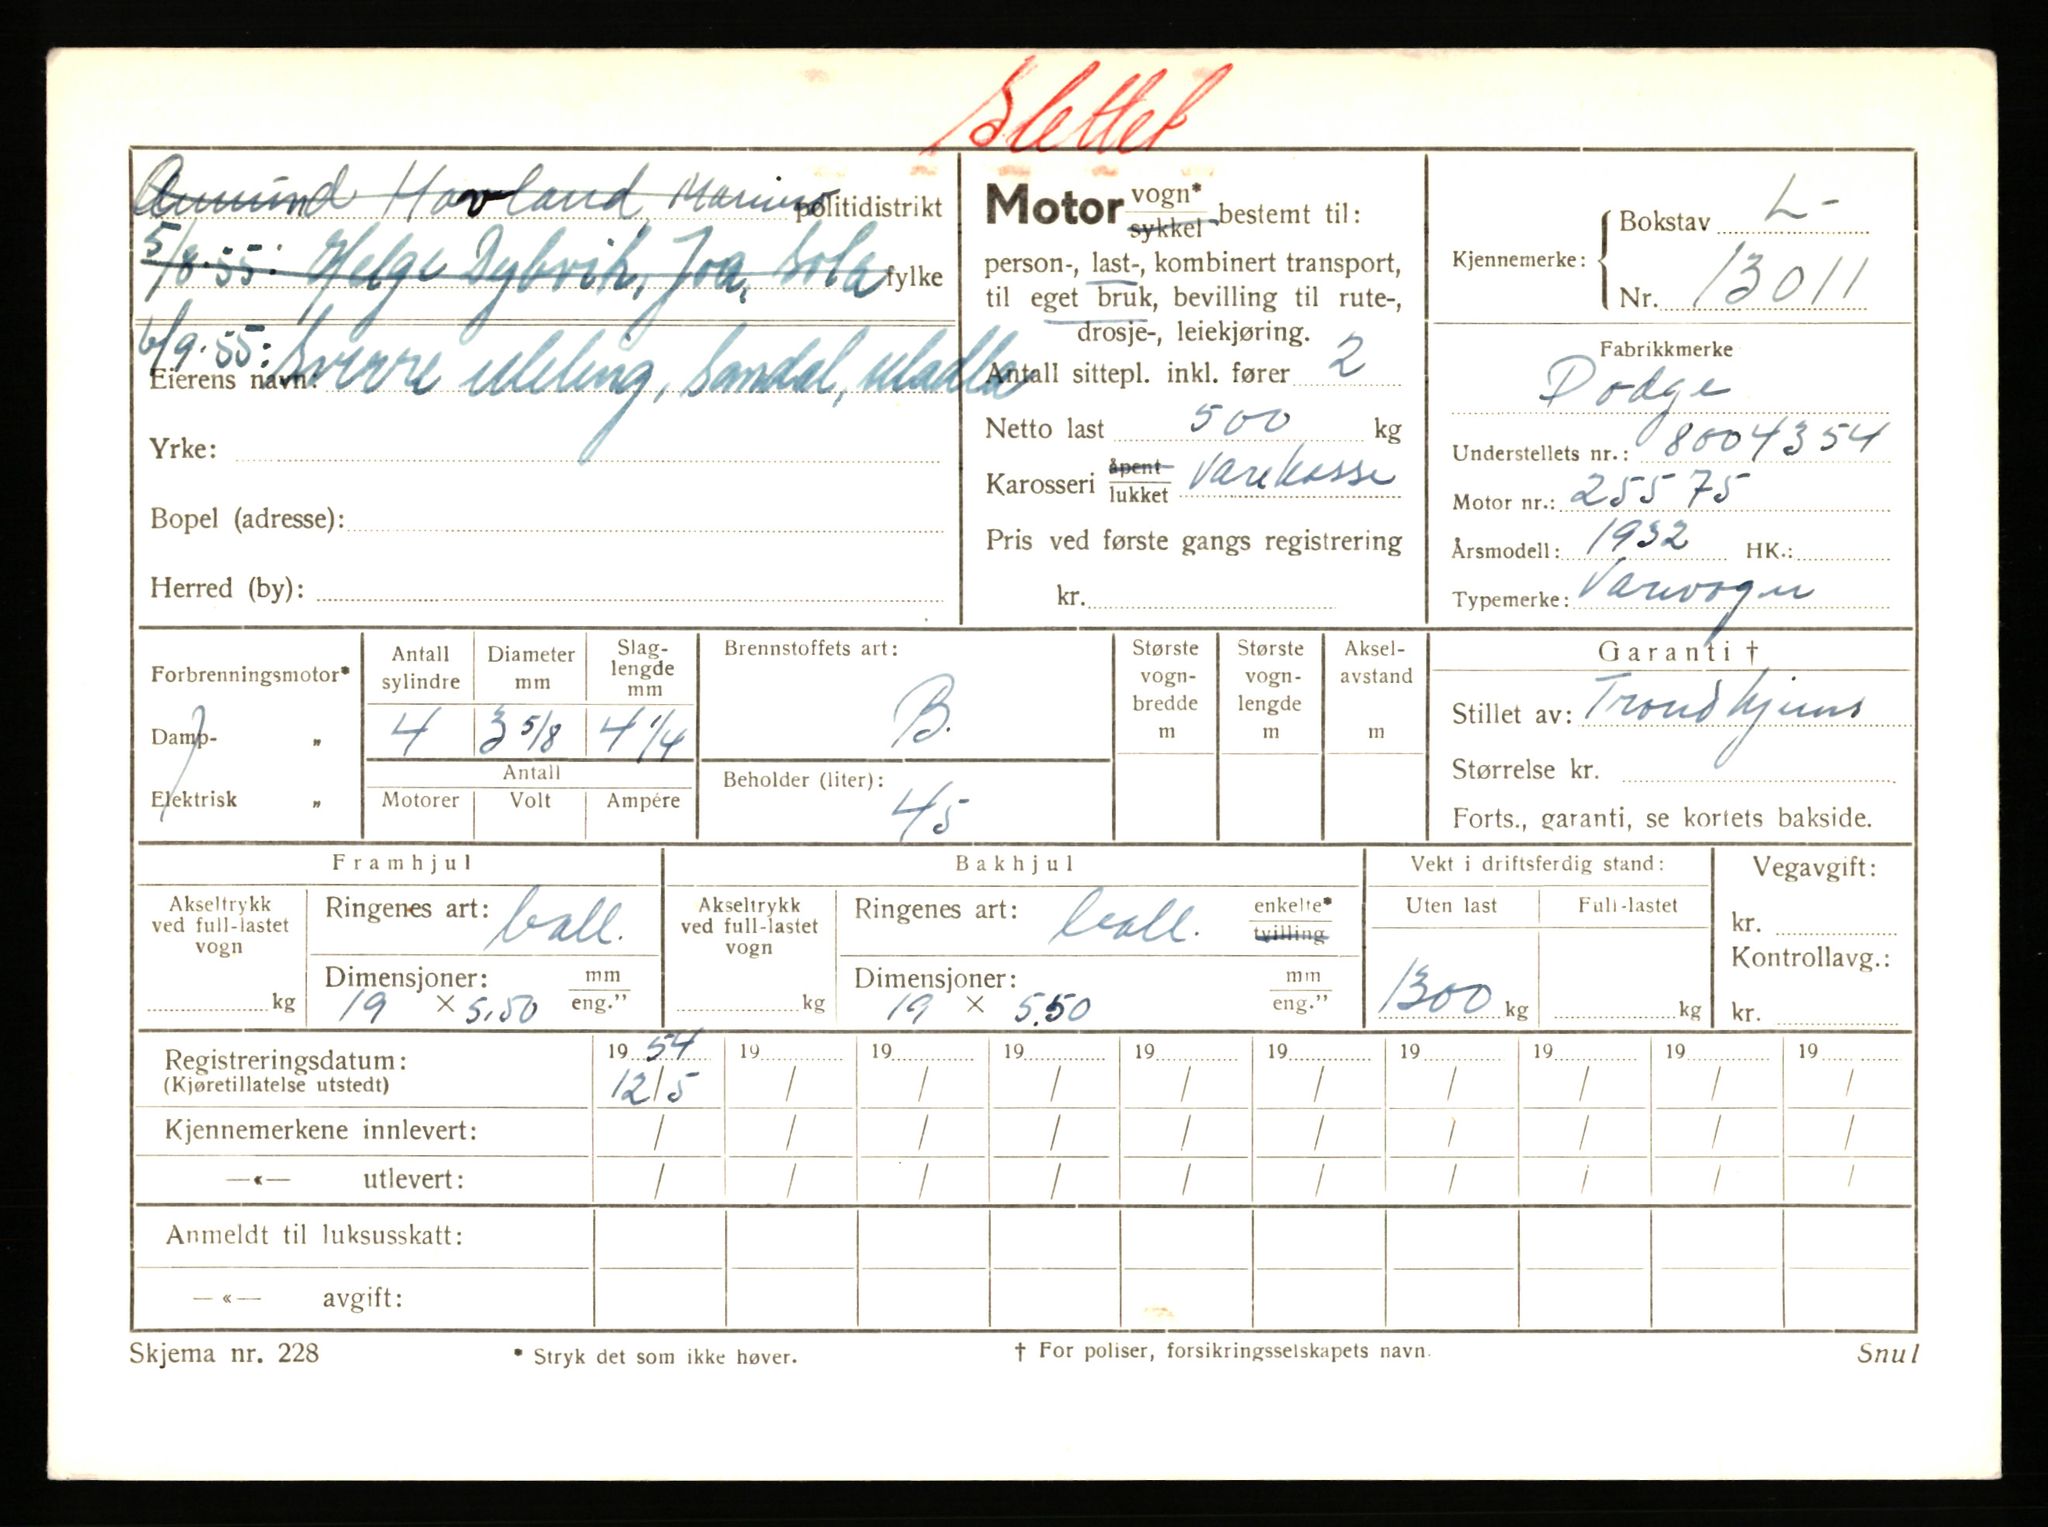 Slettet
Amund Hovland, Marius politidistrikt
5/8-55: Helge Dybvik, Joa, Sola fylke
6/9-55: Sverre Meling, Sandal, Madla
Eierens navn:
Yrke:
Bopel (adresse):
Herred (by):
Motor vogn* / sykkel bestemt til:
person-, last-, kombinert transport,
til eget bruk, bevilling til rute-,
drosje-, leiekjøring.
Antall sittepl. inkl. fører 2
Netto last 500 kg
Karosseri åpent / lukket Varekasse
Pris ved første gangs registrering
kr.
Kjennemerke: Bokstav L-
Nr. 13011
Fabrikkmerke
Dodge
Understellets nr.: 8004354
Motor nr.: 25575
Årsmodell: 1932 HK.:
Typemerke: Varevogn
Forbrenningsmotor*
Damp- „
Elektrisk „
Antall sylindre
4
Diameter mm
3 5/8
Slag-lengde mm
4 1/4
Antall
Motorer Volt Ampére
Brennstoffets art:
B.
Beholder (liter):
45
Største vogn-bredde m
Største vogn-lengde m
Aksel-avstand m
Garanti †
Stillet av: Trondhjems
Størrelse kr.
Forts., garanti, se kortets bakside.
Framhjul
Akseltrykk ved full-lastet vogn
kg
Ringenes art: ball.
Dimensjoner: mm / eng."
19 × 5.50
Bakhjul
Akseltrykk ved full-lastet vogn
kg
Ringenes art: ball. enkelte* / tvilling
Dimensjoner: mm / eng."
19 × 5.50
Vekt i driftsferdig stand:
Uten last Full-lastet
1300 kg kg
Vegavgift:
kr.
Kontrollavg.:
kr.
Registreringsdatum: 19 54 19 19 19 19 19 19 19 19 19
(Kjøretillatelse utstedt) 12/5 / / / / / / / / /
Kjennemerkene innlevert: / / / / / / / / / /
—«— utlevert: / / / / / / / / / /
Anmeldt til luksusskatt:
—«— avgift:
Skjema nr. 228 * Stryk det som ikke høver. † For poliser, forsikringsselskapets navn. Snul